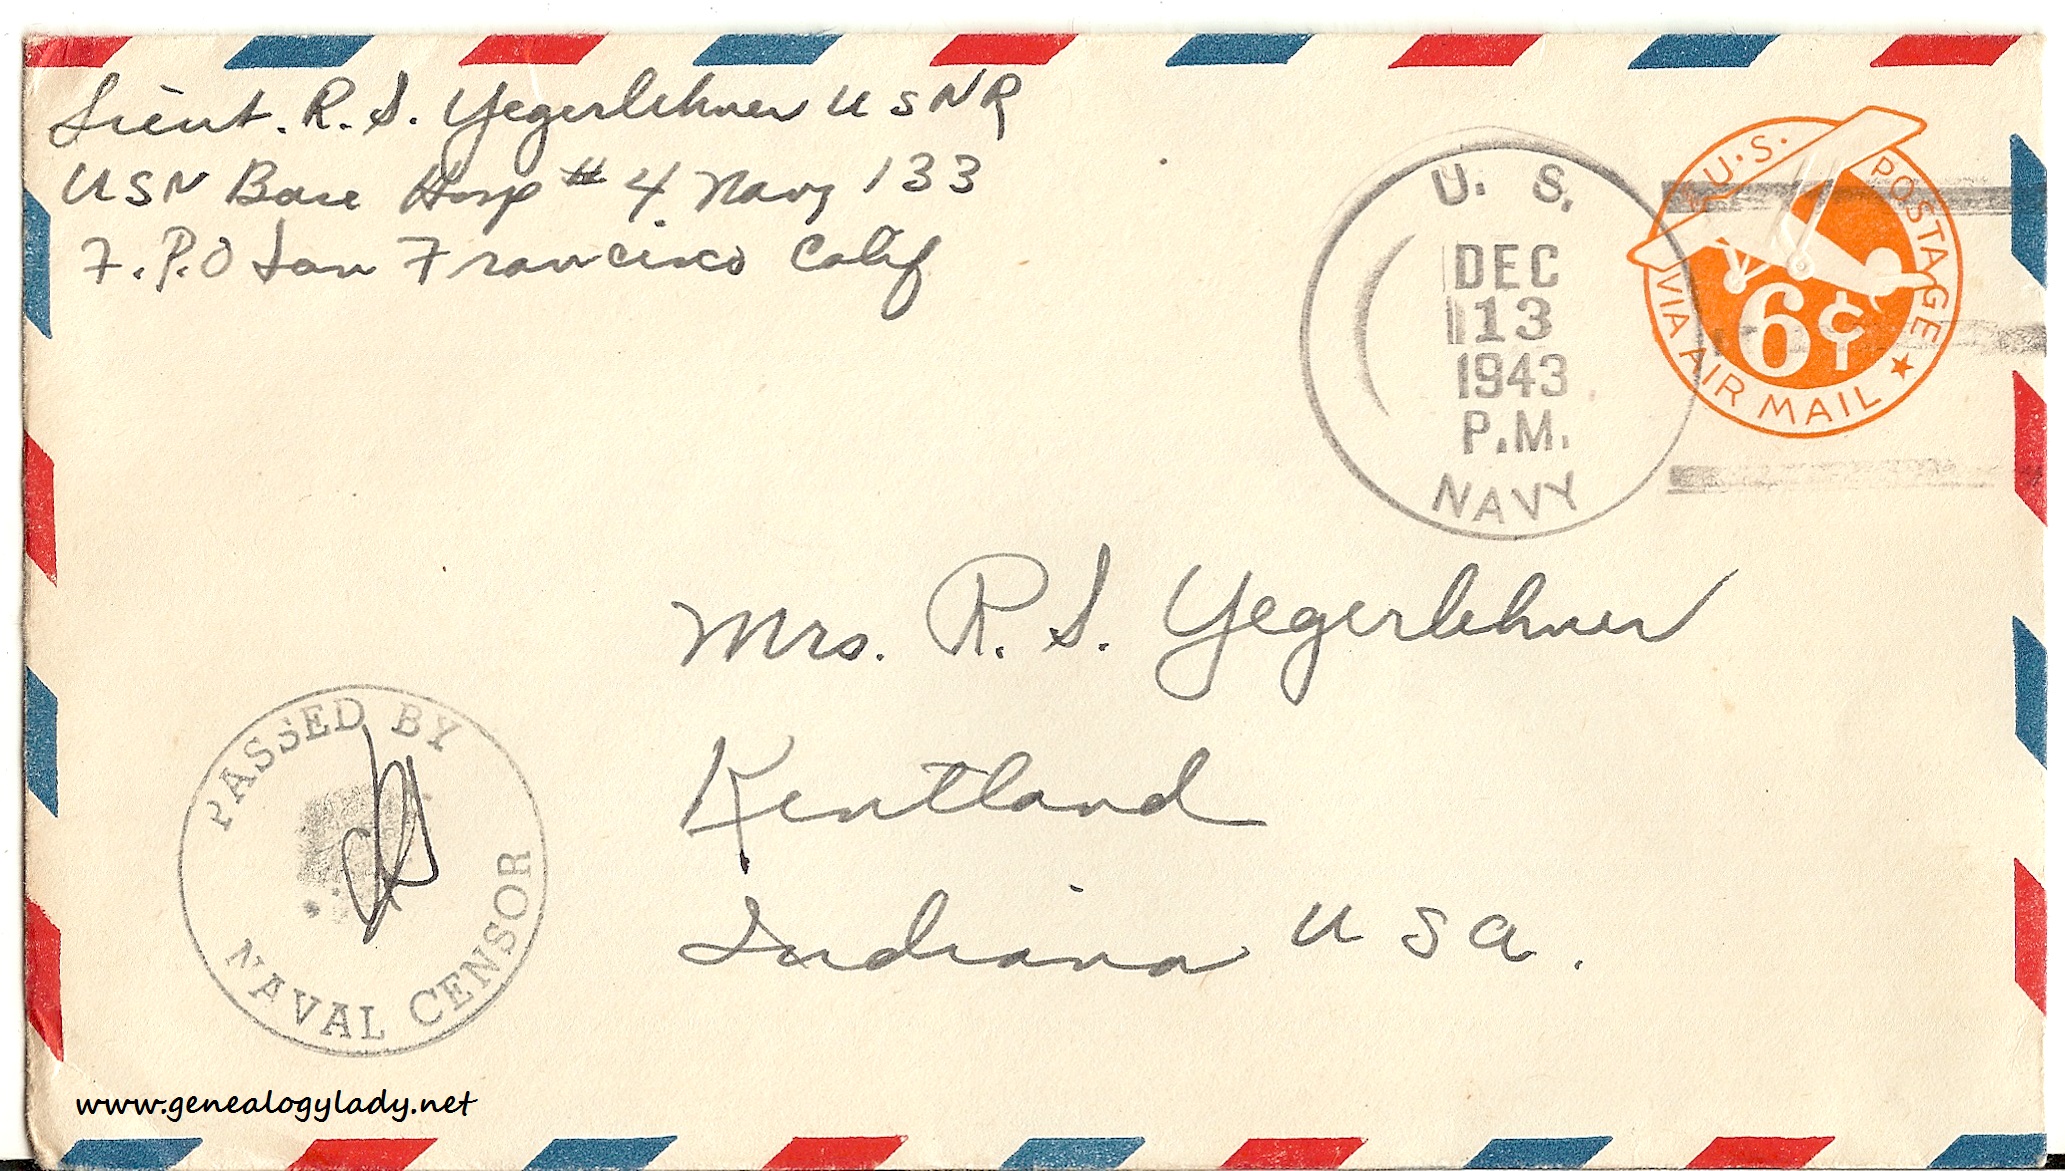 Lieut. R. S. Yegerlehner USNR
USN Base Hosp # 4 Navy 133
F.P.O San Francisco Calif
U. S.
DEC
13
1943
P.M.
NAVY
U.S. POSTAGE
6¢
VIA AIR MAIL
Mrs. R. S. Yegerlehner
Kentland
Indiana USA.
PASSED BY
NAVAL CENSOR
www.genealogylady.net